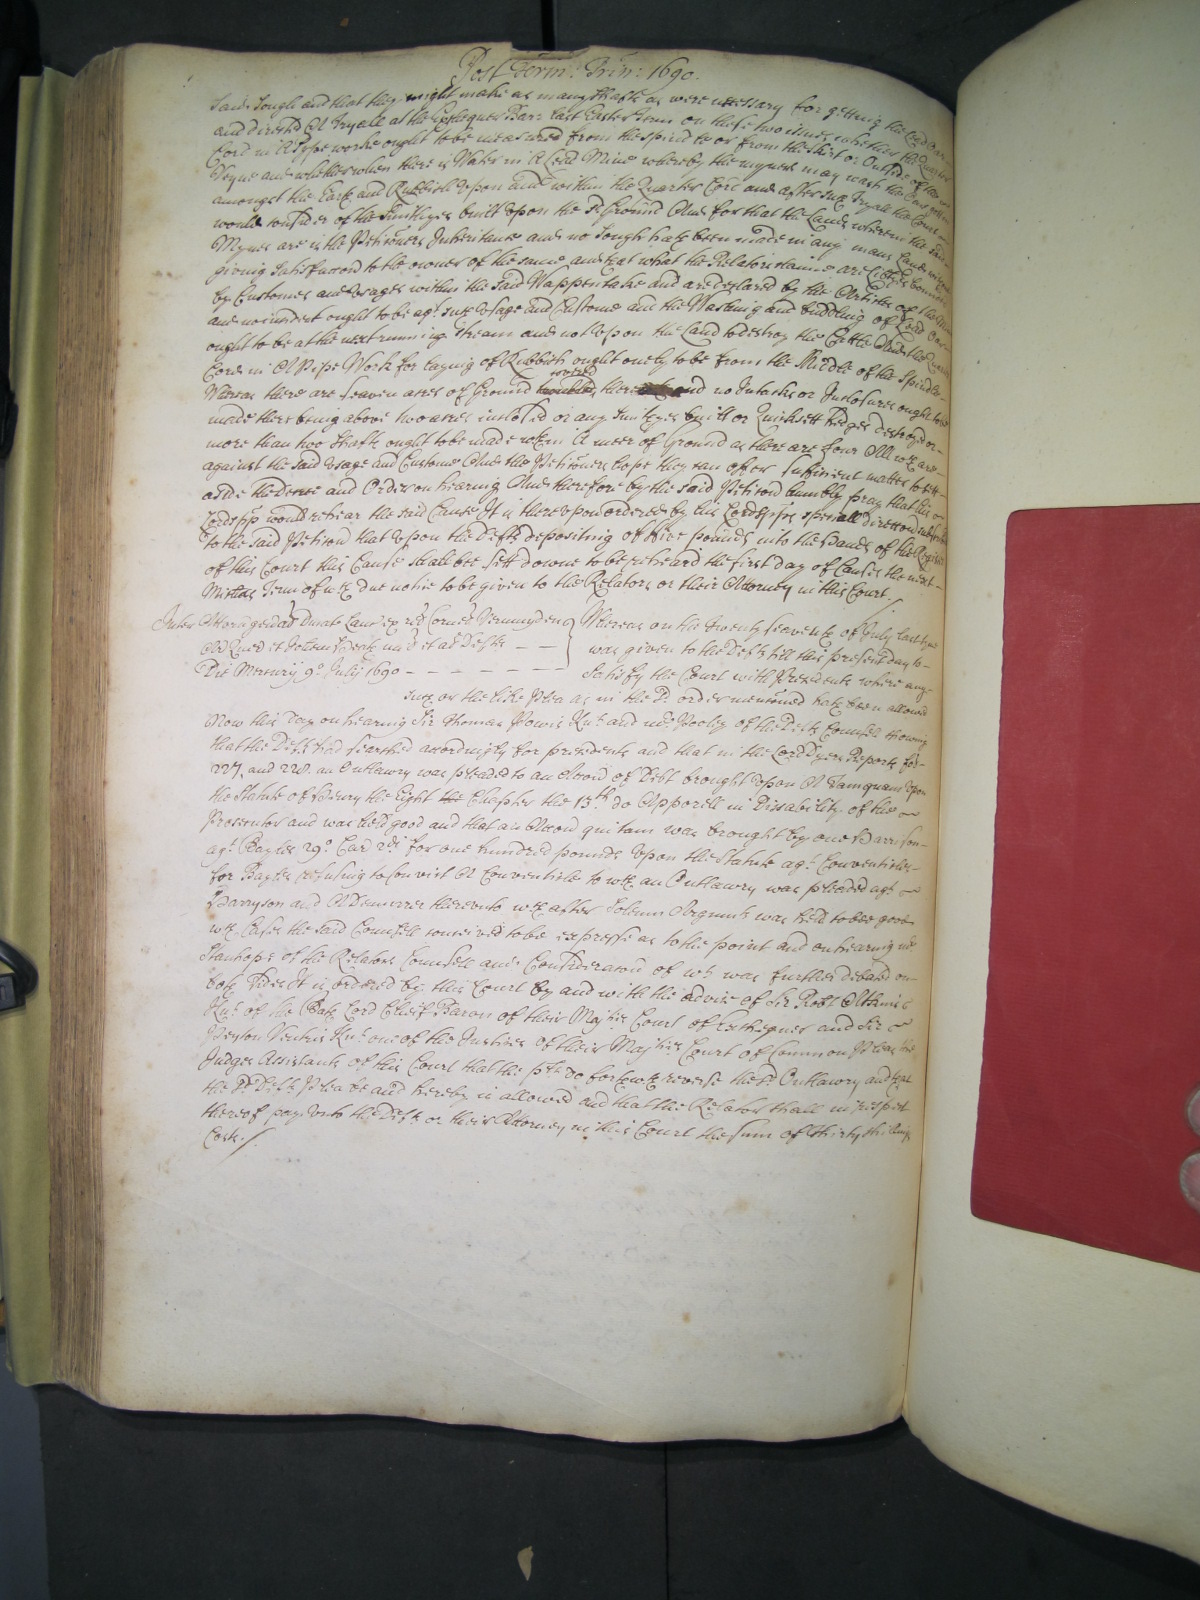 Post Term: Trin: 1690.
said Sough and that they might make as many Shafts as were necessary for getting the Lead Oare
and directed A Tryall at the Exchequer Barr last Easter Terme on these two issues whether the Quarter
Cord in A Pype worke ought to be measured from the spindle or from the Skirt or Outside of the
Veyne and whether when there is Water in A Lead Mine whereby the myners may wash the Oare gotten
amongst the Earth and Rubbish upon and within the Quarter Cord and after such Tryall the Court
would consider of the Smithyes built upon the sd Ground And for that the Lands wherein the said
Mynes are is the Petitioners Inheritance and no Sough hath been made in any mans Lands without
giving Satisfaccon to the owner of the same and that what the Relators claime are Libtyes bounded
by Customes and Usages within the said Wappentake and are declared by the Articles of the
and no indict ought to be agt. such Usage and Custome and the Washing and buddling of Lead Oare
ought to be at the next running Stream and not upon the Land to destroy the Cattle And the Quarter
Cord in A Pipe Work for laying of Rubbish ought onely to be from the Middle of the Spindle
Whereas there are seaven acres of Ground covered there and no Intacks or Inclosures ought to be
made there being above two acres inclosed or any Smithyes built or Quicksett hedges destroyed or
more than two Shafts ought to be made use in A meer of Ground as there are four All wch are
against the said Usage and Custome And the Petitioners hope they can offer sufficient matter to sett
aside the Decree and Order on hearing And therefore by the said Peticon humbly pray that his
Lordspp would rehear the said Cause It is thereupon ordered by his Lordspps speciall direccon
to the said Peticon that upon the Defts depositing of five pounds into the Hands of the Register
of this Court this Cause shall bee sett downe to be reheard the first day of Causes the next
Michas Term of wch due notice to be given to the Relators or their Attorney in this Court.
Inter Attorn general Ducat Lanc ex rel Cornel Vermuyden
Ar Quer et Johem Heath and et al Defts
Die Mercurij 9o July 1690
Whereas on the twenty seaventh of July last
was given to the Defts till this present day to
satisfy the Court with Presidents where any
such or the like Plea as in the sd order mencioned hath been allowed
Now this day on hearing Sir Thomas Powis Knt and mr Pooley of the Defts Councell shewing
that the Defts had searched accordingly for presidents and that in the Lord Dyers Reports fol:
227. and 228. an Outlawry was pleaded to an Accon of Debt brought upon A Tamquam upon
the Statute of Henry the Eight the Chapter the 13th do Apporell in Dissability of the
Prosecutor and was held good and that an Accon qui tam was brought by one Harrison
agt. Bayles 29o Car 2di for one hundred pounds upon the Statute agt. Conventicles
for Bayles refusing to Convict A Conventicle to wch an Outlawry was pleaded agt
Harryson and A Demurrer thereunto wch after Solemn Argumts was held to bee good
wch Cases the said Councell conceived to be expresse as to the point and on hearing mr
Stanhope of the Relators Councell and Consideracon of wt was further debated on
both Sides It is ordered by this Court by and with the advise of Sir Robt Atkins
Knt of the Bath Lord Cheif Baron of their Majties Court of Exchequer and Sir
Peyton Ventris Knt one of the Justices of their Majties Court of Common Pleas the
Judges Assistants of this Court that the plts do forthwth reverse the sd Outlawry and that
the sd Defts Plea be and hereby is allowed and that the Relator shall in respect
thereof pay unto the Defts or their Attorney in this Court the sum of thirty shillings
Costs./